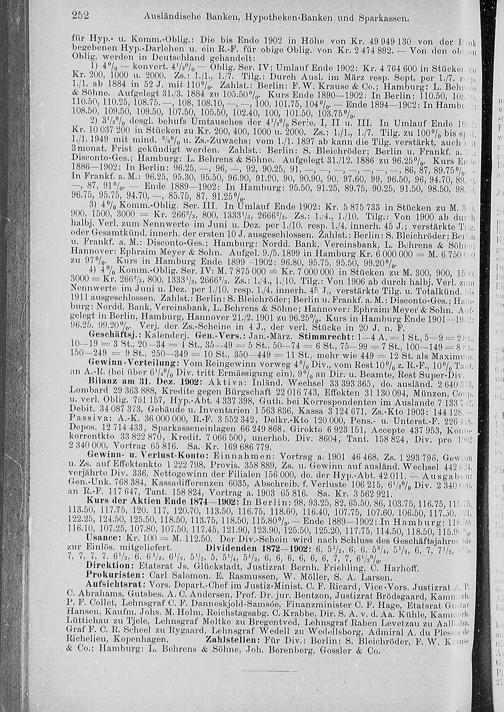 252 Ausländische Banken, Hypotheken-Banken und Sparkassen.
für Hyp.- u. Komm.-Oblig.: Die bis Ende 1902 in Höhe von Kr. 49 949 130 von der
begebenen Hyp.-Darlehen u. ein R.-F. für obige Oblig. von Kr. 2 474 892. — Von den
Oblig. werden in Deutschland gehandelt:
1) 4% — konvert. 4½% — Oblig. Ser. IV; Umlauf Ende 1902: Kr. 4 764 600 in Stücken
Kr. 200, 1000 u. 2000. Zs.: 1./1., 1./7. Tilg.: Durch Ausl. im März resp. Sept. per 1./7.
1./1. ab 1884 in 52 J. mit 110%. Zahlst.: Berlin: F. W. Krause & Co.; Hamburg: L. Behrens
& Söhne. Aufgelegt 31./3. 1884 zu 105.50%. Kurs Ende 1890—1902: In Berlin: 110.50,
110.50, 110.25, 108.75, —, 108, 108.10, —, —, 100, 101.75, 104%. — Ende 1894—1902: In Hamburg
108.50, 109.50, 109.50, 107.50, 105.50, 102.40, 100, 101.50, 103.75%.
2) 3½% desgl. behufs Umtausches der 4½% Serie. I, II u. III. In Umlauf Ende
Kr. 10 037 200 in Stücken zu Kr. 200, 400, 1000 u. 2000. Zs.: 1./1., 1./7. Tilg. zu 100% bis
1./1. 1949 mit mind. % u. Zs.-Zuwachs; vom 1./1. 1897 ab kann die Tilg. verstärkt, auch mit
3 monat. Frist gekündigt werden. Zahlst.: Berlin: S. Bleichröder; Berlin u. Frankf. a.
Disconto-Ges.; Hamburg: L. Behrens & Söhne. Aufgelegt 31./12. 1886 zu 96.25%. Kurs Ende
1886—1902: In Berlin: 96.25, —, 96, —, 92, 90.25, 91, —, —, —, —, —, —, 86, 87, 89.75%.
In Frankf. a. M.: 96.25, 95.30, 95.50, 96.90, 91.20, 90, 90.90, 90, 97.60, 99, 96.50, 96, 94.70, 8
—, 87, 91%. — Ende 1889—1902: In Hamburg: 95.50, 91.25, 89.75, 90.25, 91.50, 98.50, 98.
96.75, 95.75, 94.70, —, 85.75, 87, 91.25%.
3) 4% Komm.-Oblig. Ser. III. In Umlauf Ende 1902: Kr. 5 875 733 in Stücken zu M.
900, 1500, 3000 = Kr. 266⅔, 800, 1333⅓, 2666⅔. Zs.: 1./4., 1./10. Tilg.: Von 1900 ab durch
halbj. Verl. zum Nennwerte im Juni u. Dez. per 1./10. resp. 1./4. innerh. 45 J.; verstärkte
oder Gesamtkünd. innerh. der ersten 10 J. ausgeschlossen. Zahlst.: Berlin: S. Bleichröder;
u. Frankf. a. M.: Disconto-Ges.; Hamburg: Nordd. Bank, Vereinsbank, L. Behrens & Söhne
Hannover: Ephraim Meyer & Sohn. Aufgel. 9./5. 1899 in Hamburg Kr. 6 000 000 = M. 6 750
zu 97%. Kurs in Hamburg Ende 1899—1902: 96.80, 95.75, 95.50, 99.20%.
4) 4% Komm.-Oblig. Ser. IV: M. 7 875 000 = Kr. 7 000 000 in Stücken zu M. 300, 900,
3000 = Kr. 266⅔, 800, 1333⅓, 2666⅔. Zs.: 1./4., 1./10. Tilg.: Von 1906 ab durch halbj. Verl. zum
Nennwerte im Juni u. Dez. per 1./10. resp. 1./4. innerh. 45 J., verstärkte Tilg. u. Totalkünd.
1911 ausgeschlossen. Zahlst.: Berlin: S. Bleichröder; Berlin u. Frankf. a. M.: Disconto-Ges.;
burg: Nordd. Bank, Vereinsbank, L. Behrens & Söhne; Hannover: Ephraim Meyer & Sohn.
gelegt in Berlin, Hamburg, Hannover 21./2. 1901 zu 96.25%. Kurs in Hamburg Ende 1901—
96.25, 99.20%. Verj. der Zs.-Scheine in 4 J., der verl. Stücke in 20 J. n. F.
Geschäftsj.: Kalenderj. Gen.-Vers.: Jan.-März. Stimmrecht: 1—4 A. = 1 St., 5—9 =
10—19 = 3 St., 20—34 = 4 St., 35—49 = 5 St., 50—74 = 6 St., 75—99 = 7 St., 100—149 = 8
150—249 = 9 St., 250—349 = 10 St., 350—449 = 11 St., mehr wie 449 = 12 St. als Maximum.
Gewinn-Verteilung: Vom Reingewinn vorweg 4% Div., vom Rest 10% z. R.-F., 10% Tant.
an A.-R. (bei über 6½% Div. tritt Ermässigung ein), 9% an Dir. u. Beamte, Rest Super-Div.
Bilanz am 31. Dez. 1902: Aktiva: Inländ. Wechsel 33 393 365, do. ausländ. 2 640
Lombard 29 363 888, Kredite gegen Bürgschaft 22 016 743, Effekten 31 130 094, Münzen,
u. verl. Oblig. 751 157, Hyp.-Abt. 4 337 398, Guth. bei Korrespondenten im Auslande 7 133
Debit. 34 087 373, Gebäude u. Inventarien 1 563 836, Kassa 3 124 671, Zs.-Kto 1903: 144 128.
Passiva: A.-K. 36 000 000, R.-F. 3 552 342, Delkr.-Kto 120 000, Pens.- u. Unterst.-F. 226
Depos. 12 714 433, Sparkasseneinlagen 66 249 868, Girokto 6 923 151, Accepte 437 953,
korrentkto 33 822 870, Kredit. 7 066 500, unerhob. Div. 8604, Tant. 158 824, Div. pro
2 340 000, Vortrag 65 816. Sa. Kr. 169 686 779.
Gewinn- u. Verlust-Konto: Einnahmen: Vortrag a. 1901 46 468, Zs. 1 293 796,
u. Zs. auf Effektenkto 1 222 798, Provis. 358 889, Zs. u. Gewinn auf ausländ. Wechsel 442
verjährte Div. 336, Nettogewinn der Filialen 156 000, do. der Hyp.-Abt. 42 011. — Ausgaben:
Gen.-Unk. 768 384, Kassadifferenzen 6035, Abschreib. f. Verluste 106 215, 6½% Div. 2 340
an R.-F. 117 647, Tant. 158 824, Vortrag a. 1903 65 816. Sa. Kr. 3 562 921.
Kurs der Aktien Ende 1874—1902: In Berlin: 98, 93.25, 82, 65.50, 86, 103.75, 116.75,
113.50, 117.75, 120, 117, 120.70, 113.50, 116.75, 118.60, 116.40, 107.75, 107.60, 106.50, 117.30,
122.25, 124.50, 125.50, 118.50, 113.75, 118.50, 115.80%. — Ende 1889—1902: In Hamburg:
116.10, 107.25, 107.80, 107.50, 117.45, 121.90, 123.90, 125.50, 125.20, 117.75, 114.50, 118.50, 115.
Usance: Kr. 100 = M. 112.50. Der Div.-Schein wird nach Schluss des Geschäftsjahres
zur Einlös. mitgeliefert. Dividenden 1872—1902: 6, 5½, 6, 6, 5¾, 5½, 6, 7, 7½,
7, 7, 7, 7, 6½, 6, 6½, 6½, 5½, 5, 5½, 5½, 6, 6, 6, 6, 6, 7, 7, 7, 6½%.
Direktion: Etatsrat Js. Glückstadt, Justizrat Bernh. Friehling, C. Harhoff.
Prokuristen: Carl Salomon, E. Rasmussen, W. Möller, S. A. Larsen.
Aufsichtsrat: Vors. Depart.-Chef im Justiz-Minist. C. F. Ricard, Vice-Vors. Justizrat A.
C. Abrahams, Gutsbes. A. C. Andersen, Prof. Dr. jur. Bentzon, Justizrat Brödsgaard,
P. F. Collet, Lehnsgraf C. F. Danneskjold-Samsöe, Finanzminister C. F. Hage, Etatsrat
Hansen, Kaufm. Johs. M. Holm, Reichstagsabg. C. Krabbe, Dir. S. A. v. d. Aa. Kühle,
Lüttichau zu Tjele, Lehnsgraf Moltke zu Bregentved, Lehnsgraf Raben Levetzau zu
Graf F. C. R. Scheel zu Rygaard, Lehnsgraf Wedell zu Wedellsborg, Admiral A. du Ples
Richelieu, Kopenhagen. Zahlstellen: Für Div.: Berlin: S. Bleichröder, F. W.
& Co.; Hamburg: L. Behrens & Söhne, Joh. Berenberg, Gossler & Co.